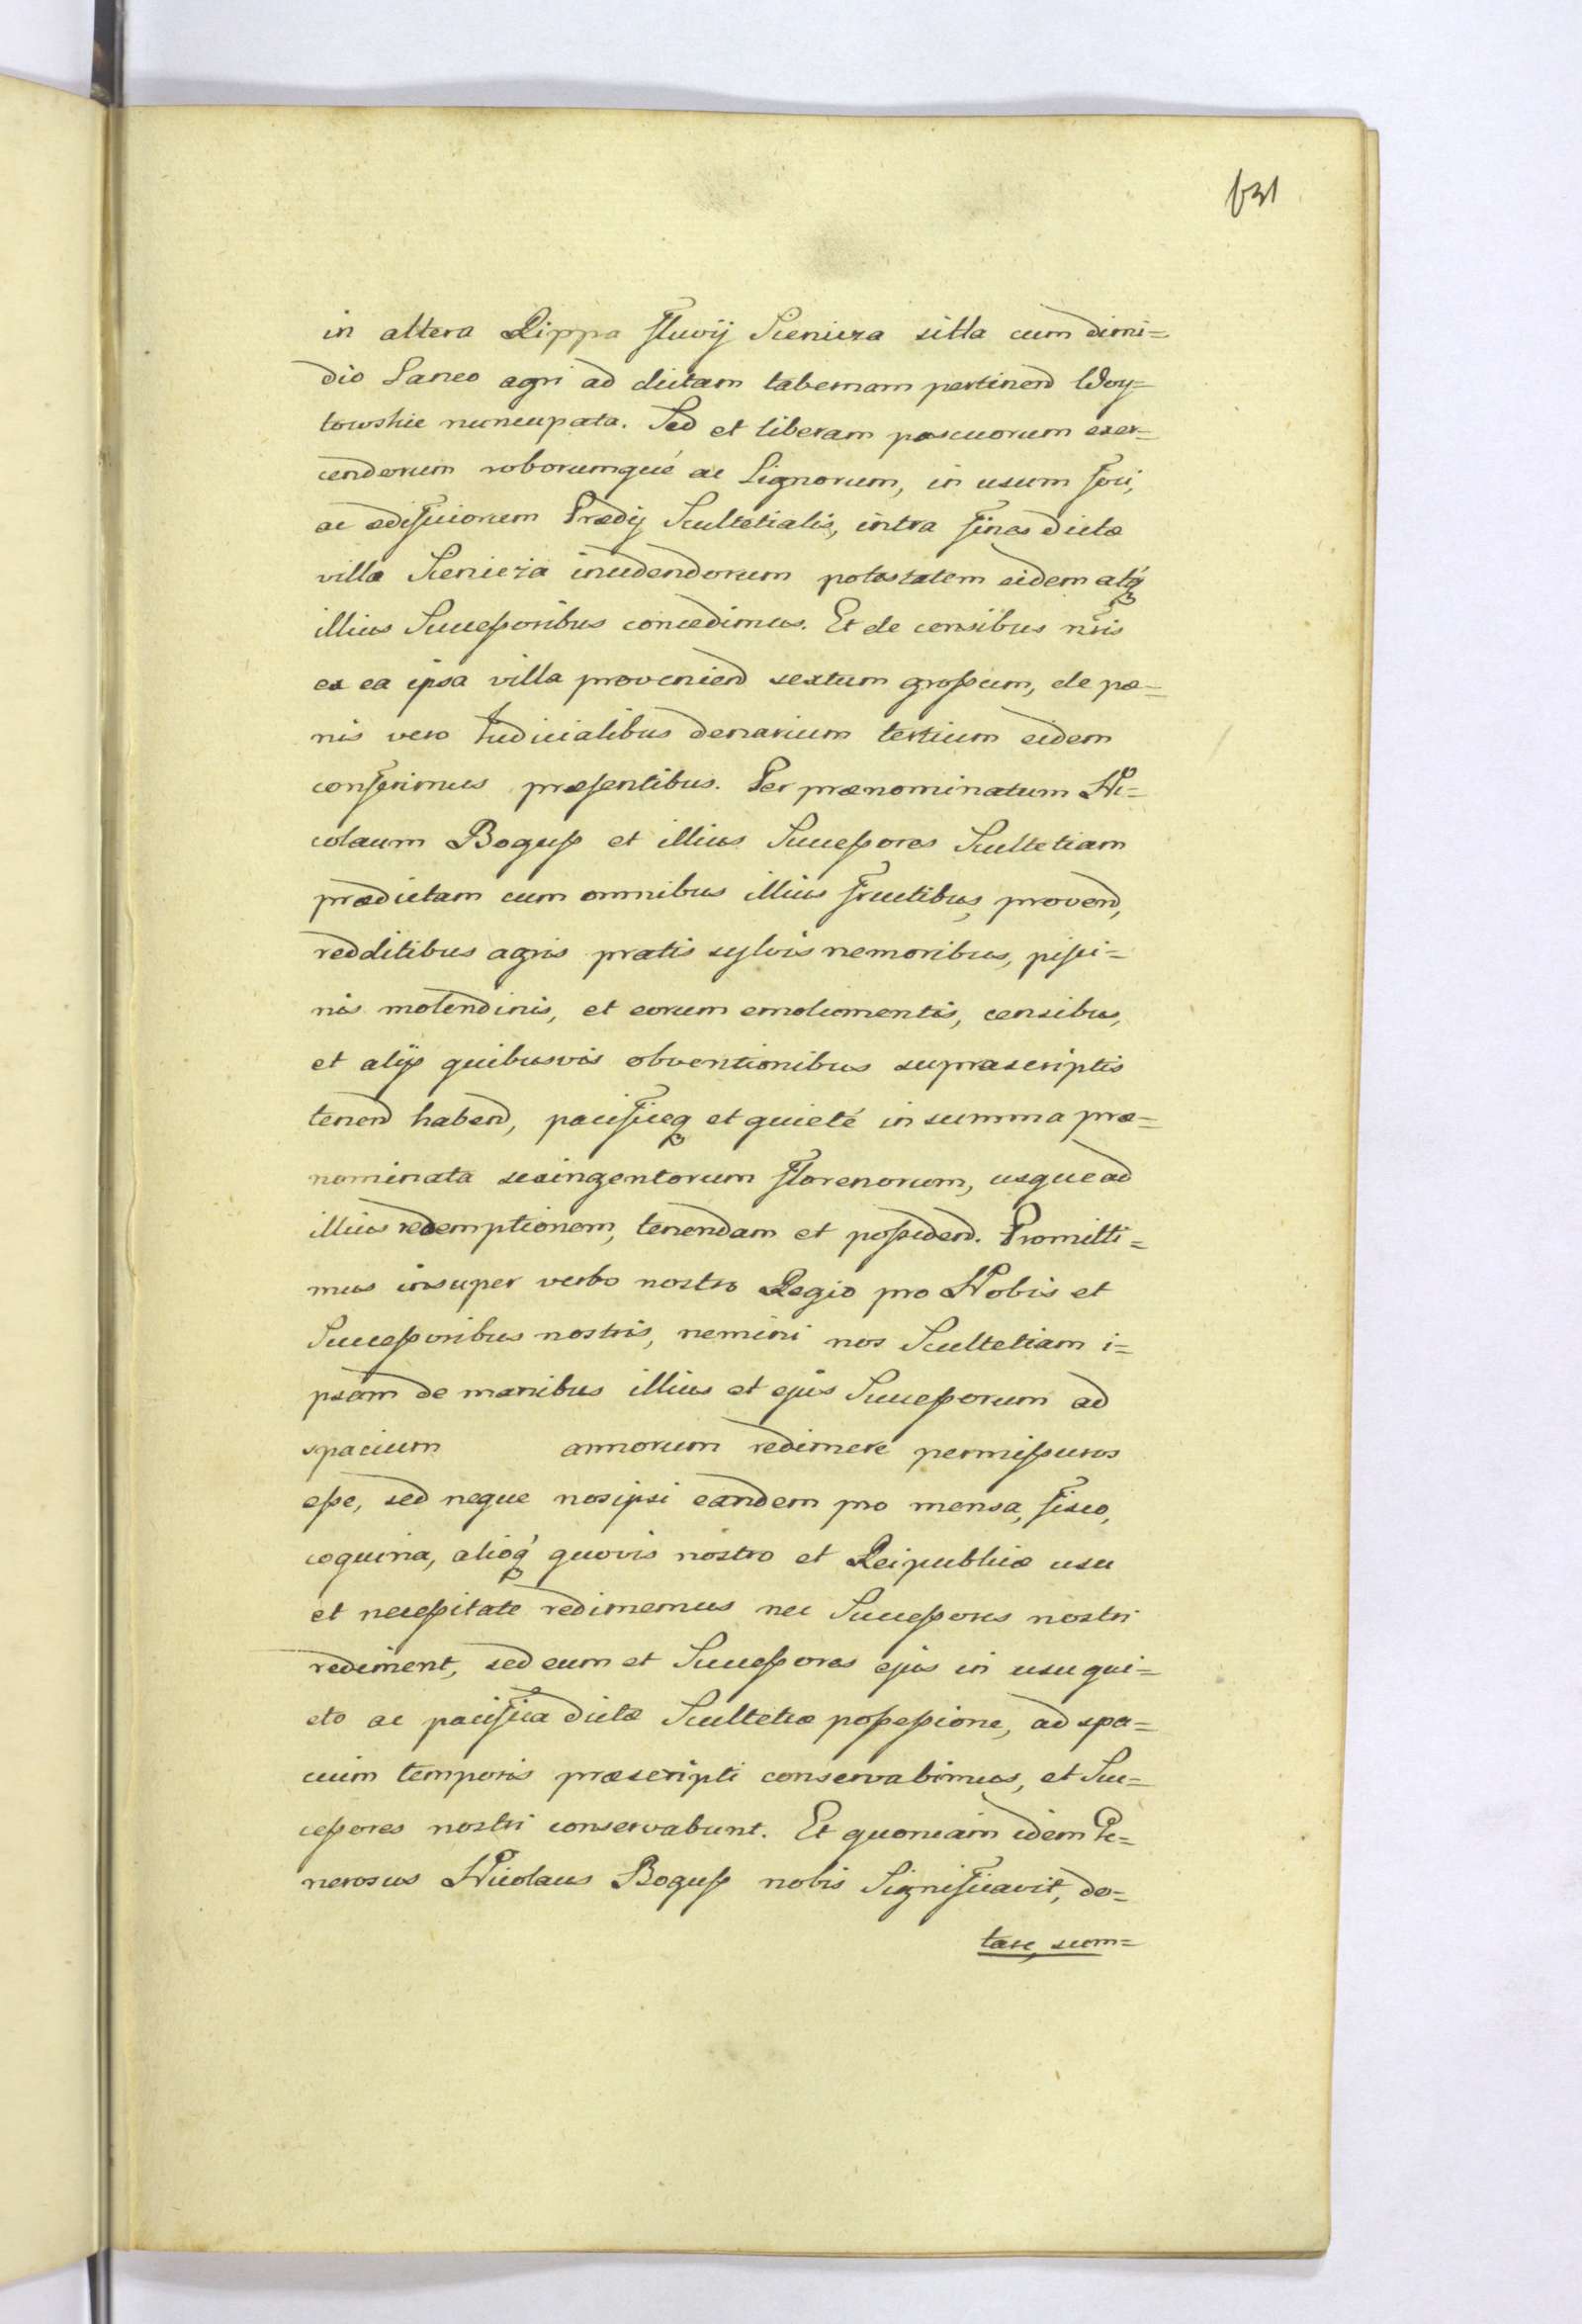 631
in altera Rippa fluvij Scenicza sitta cum dimi=
dio Laneo agri ad dictam tabernam pertinend Woy=
towskie nuncupata. Sed et liberam pascuorum exer=
cendorum roborumqué ac Lignorum, in usum foci,
ac ædificiorum Prædij Scultetialis, intra fines dictæ
villæ Scenicza incidendorum potestatem eidem atq́
illius Succeßoribus concedimus. Et de censibus nr̃is
ex ea ipsa villa proveniend sextum großum, de pæ=
nis vero Iudicialibus denarium tertium eidem
conferimus præsentibus. Per prænominatum Ni=
colaum Boguß et illius Succeßores Scultetiam
prædictam cum omnibus illius fructibus, provend,
redditibus agris pratis sylvis nemoribus, pisci=
nis molendinis, et eorum emolumentis, censibus,
et alijs quibusvis obventionibus suprascriptis
tenend habend, pacificeq et quieté in summa præ=
nominata sexingentorum florenorum, usque ad
illius redemptionem, tenendam et poßidend. Promitti=
mus insuper verbo nostro Regio pro Nobis et
Succeßoribus nostris, nemini nos Scultetiam i=
psam de manibus illius et ejus Succeßorum ad
spacium annorum redimere permißuros
eße, sed neque nosipsi eandem pro mensa, fisco,
coquina, alioq́ quovis nostro et Reipublicæ usu
et neceßitate redimemus nec Succeßores nostri
rediment, sed eum et Succeßores ejus in usu qui=
eto ac pacifica dictæ Scultetiæ poßeßione, ad spa=
cium temporis præscripti conservabimus, et Suc=
ceßores nostri conservabunt. Et quoniam idem Ge=
nerosus Nicolaus Boguß nobis Significavit, do=
tare, sum=